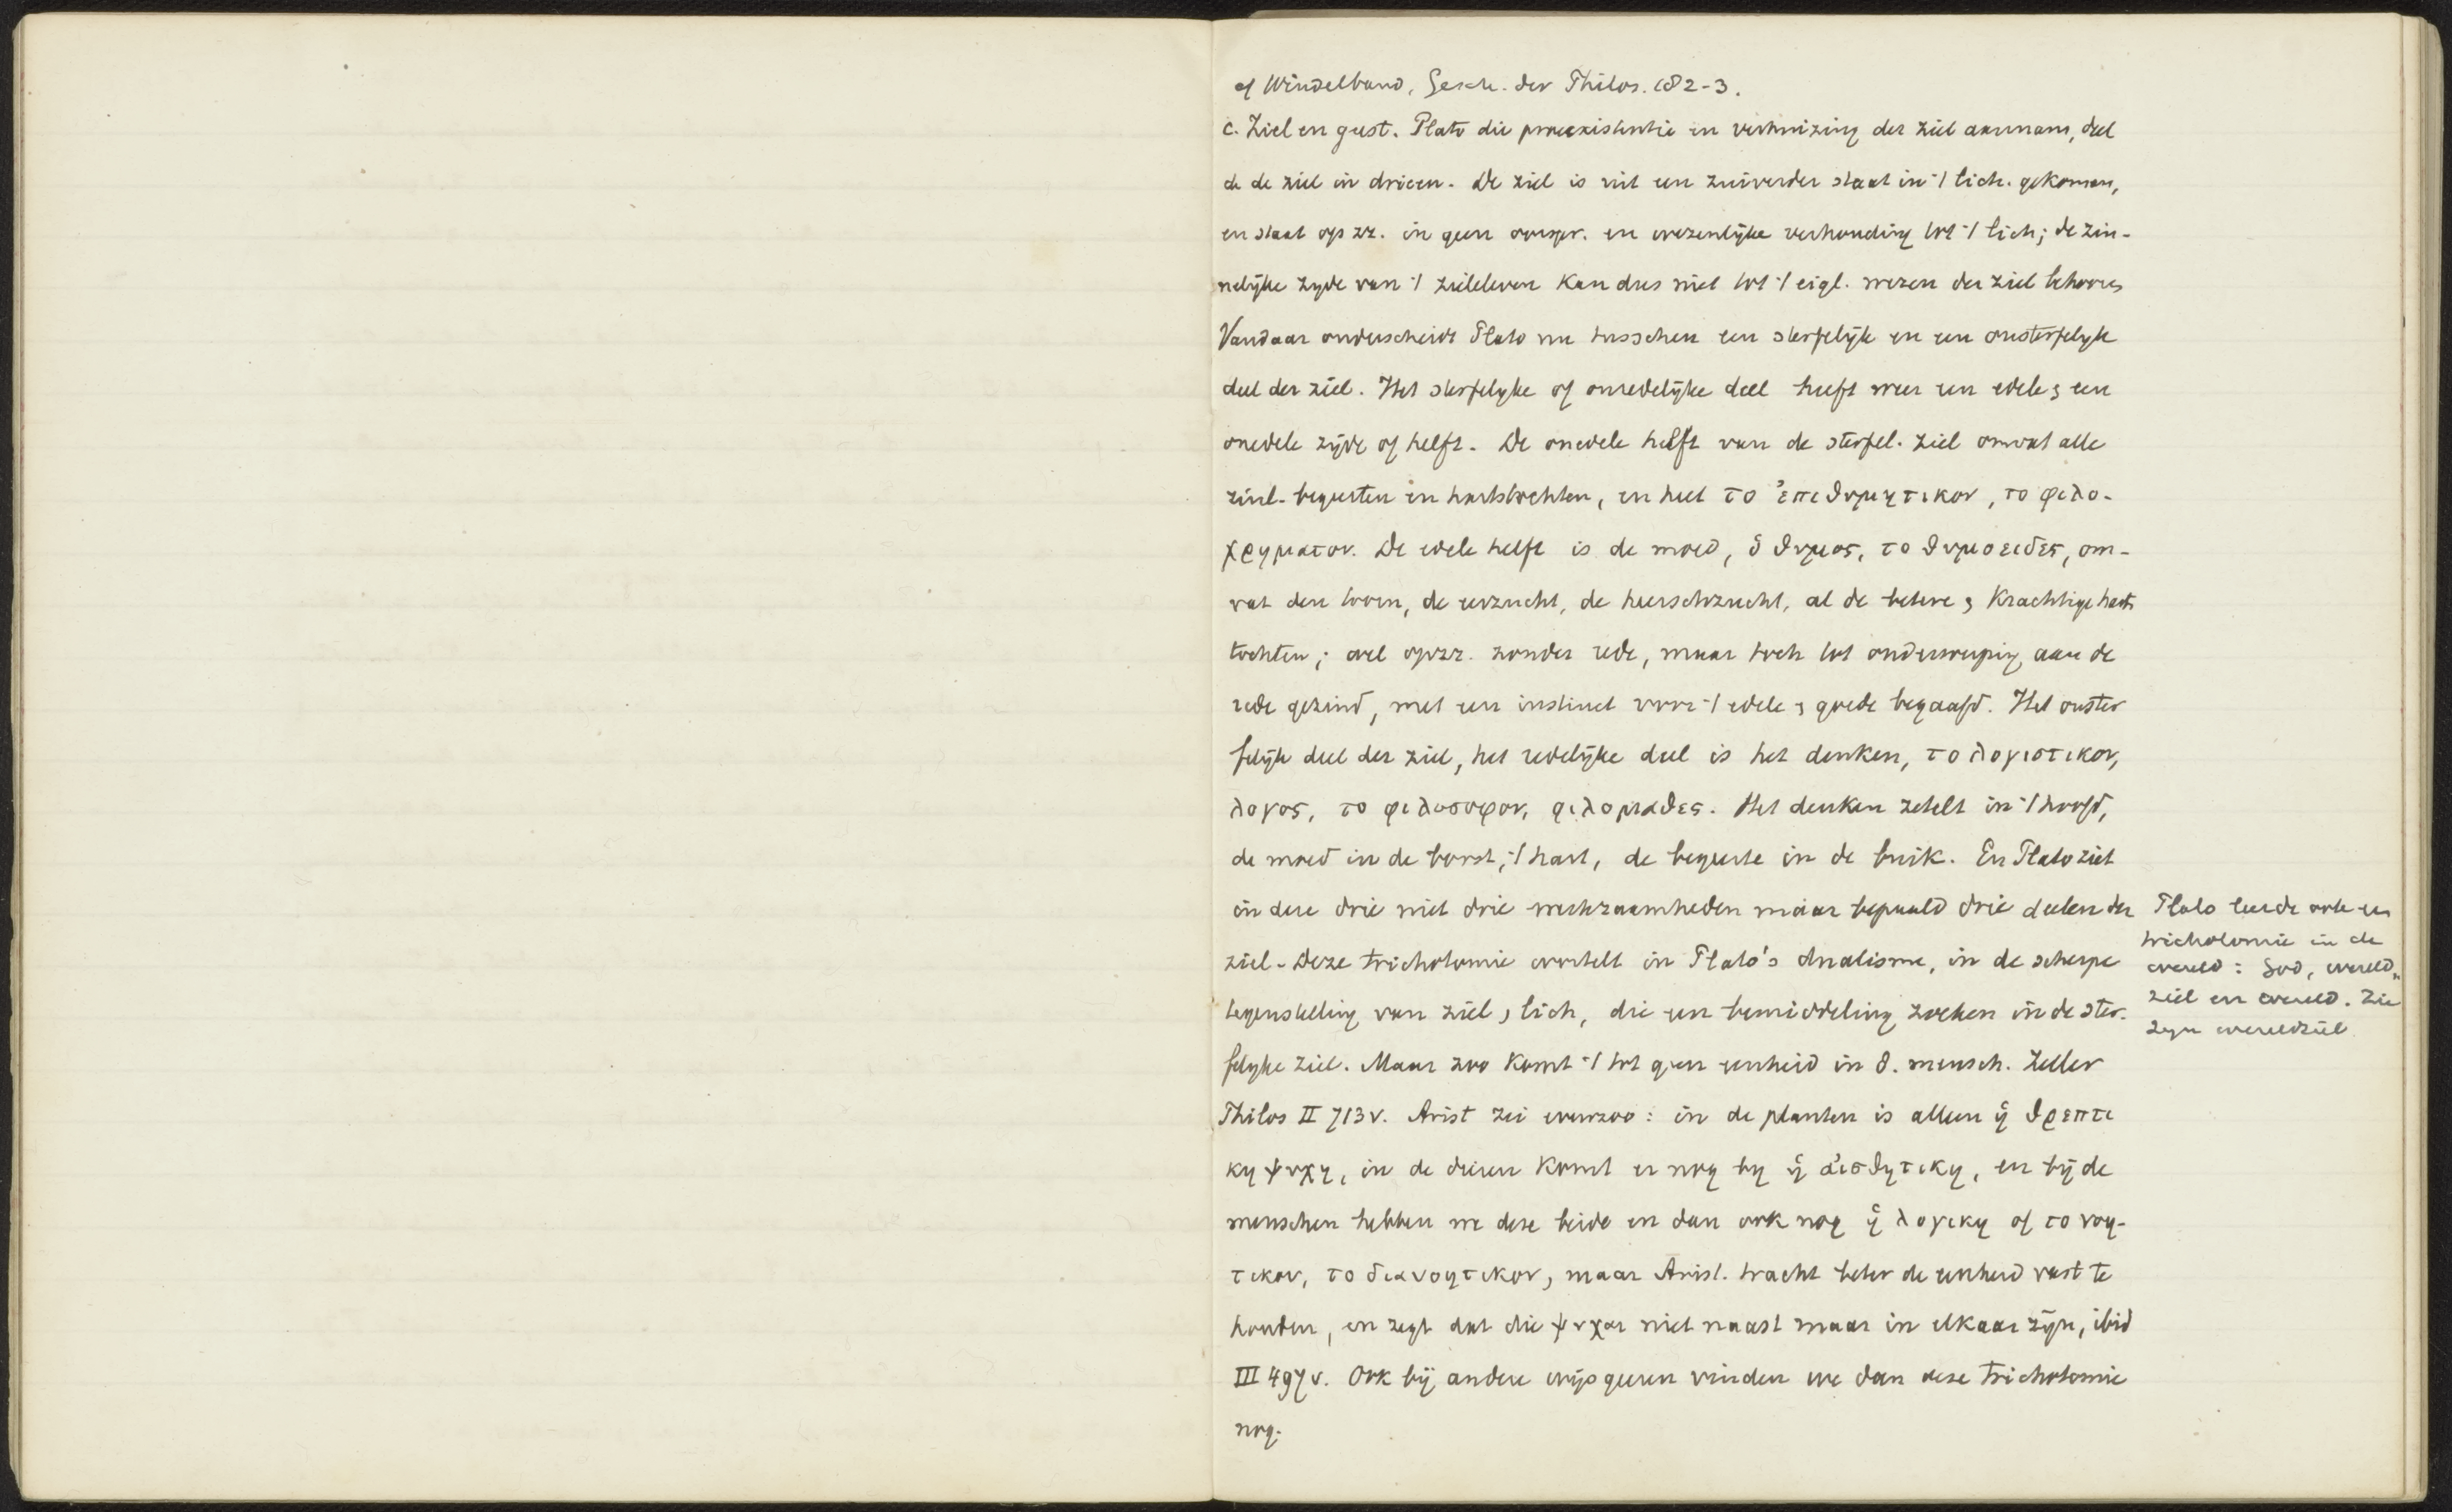 cf Windelband, Gesch. der Philos. 182-3.
c. Ziel en geest. Plato die praeexistentie en verhuizing der ziel aannam, deel
de de ziel in drieen. De ziel is uit een zuiverder staat in 't lich. gekomen,
en staat op zz. in geen oorspr. en wezenlijke verhouding tot 't lich; de zin-
nelijke zyde van 't zieleleven kan dus niet tot 't eigl. wezen der ziel behooren
Vandaar onderscheidt Plato nu tusschen een sterfelijk en een onsterfelyk
deel der ziel. Het sterfelyke of onredelijke deel heeft weer een edele & een
onedele zijde of helft. De onedele helft van de sterfel. ziel omvat alle
zinl. begeerten en hartstochten, en heet το ἐπιθυμητικον, το φιλο-
χρηματον. De edele helft is de moed, ὁ θυμος, το θυμοειδες, om-
vat den toorn, de eerzucht, de heerschzucht, al de betere & krachtige harts
tochten; wel opzz. zonder rede, maar toch tot onderwerping aan de
rede gezind, met een instinct voor 't edele & goede begaafd. Het onster
felijk deel der ziel, het redelijke deel is het denken, το λογιστικον,
λογος, το φιλοσοφον, φιλομαθες. Het denken zetelt in 't hoofd,
de moed in de borst, 't hart, de begeerte in de buik. En Plato ziet
in deze drie niet drie werkzaamheden maar bepaald drie deelen der
ziel. Deze trichotomie wortelt in Plato's dualisme, in de scherpe
tegenstelling van ziel & lich, die een bemiddeling zoeken in de ster-
felyke ziel. Maar zoo komt 't tot geen eenheid in d. mensch. Zeller
Philos II 713 v. Arist zei evenzoo: in de planten is alleen ἡ θρεπτι
κη ψυχη, in de dieren komt er nog by ἡ αἰσθητικη, en bij de
menschen hebben we deze beide en dan ook nog ἡ λογικη of το νοη-
τικον, το διανοητικον, maar Arist. tracht beter de eenheid vast te
houden, en zegt dat die ψυχαι niet naast maar in elkaar zijn, ibid
III 497 v. Ook bij andere wijsgeeren vinden we dan deze trichotomie
nog.
Plato leerde ook een
trichotomie in de
wereld: God, wereld„
ziel en wereld. Zie
zyn wereldziel